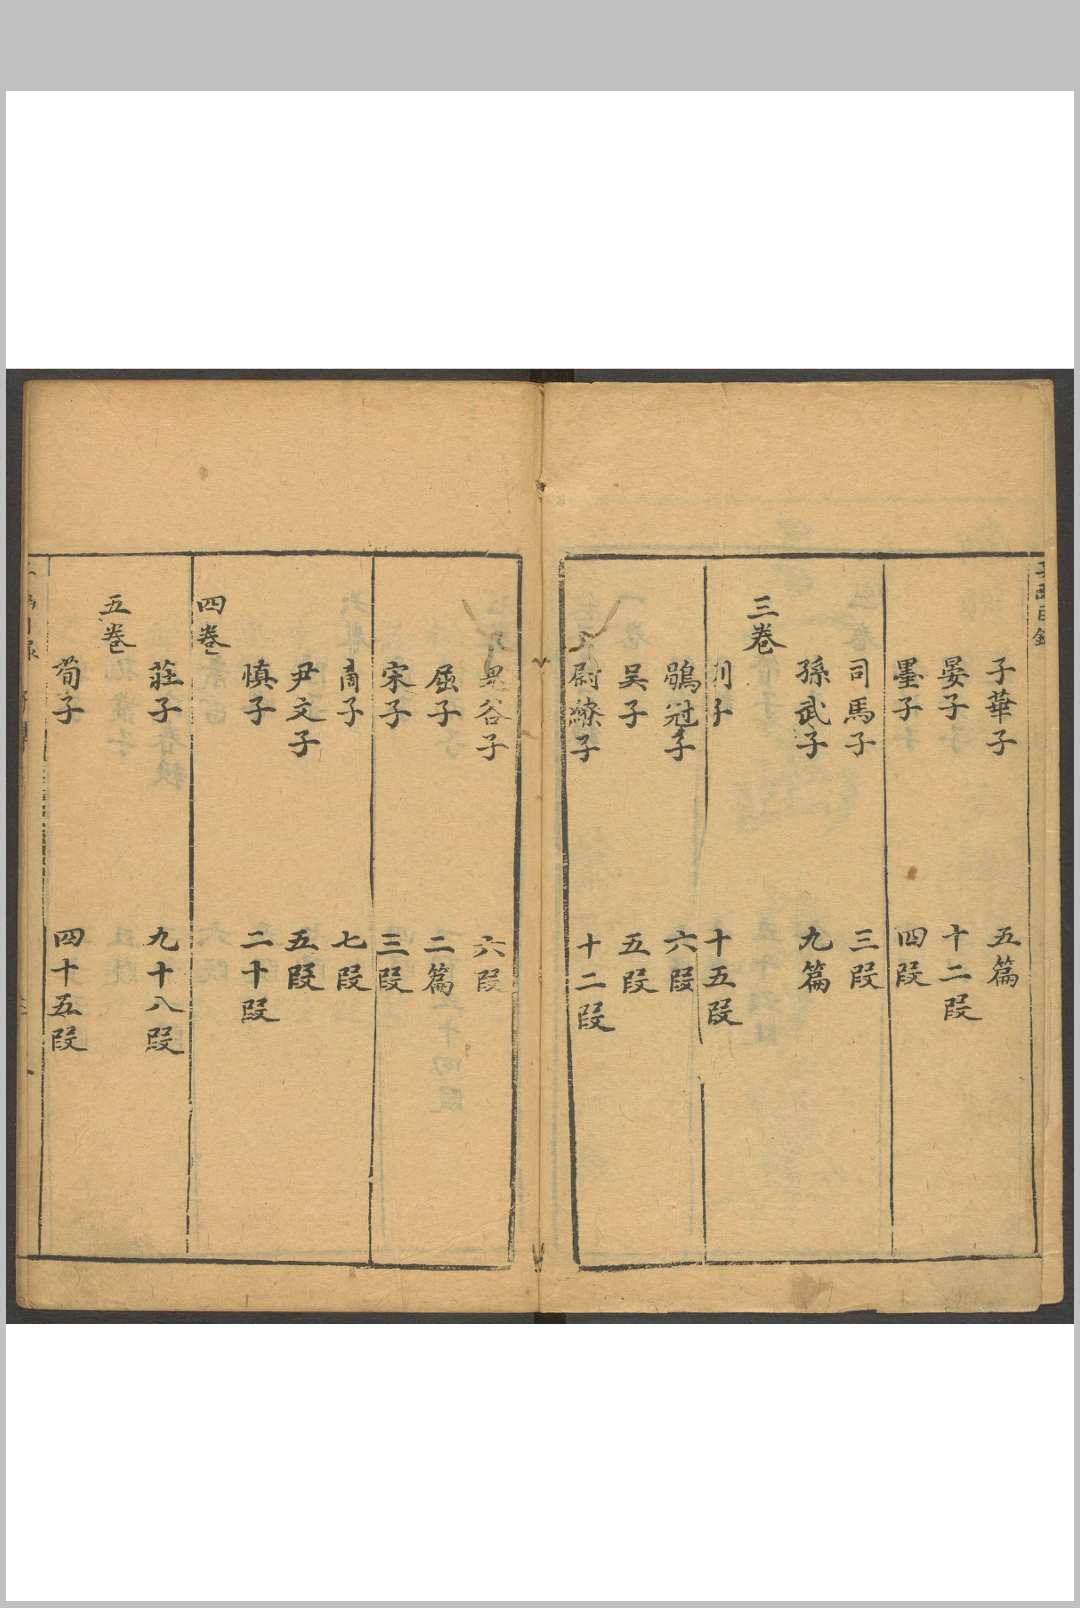 子華子 五篇
晏子 十二段
墨子 四段
司馬子 三段
孫武子 九篇
三卷
列子 十五段
鶡冠子 六段
吴子 五段
尉繚子 十二段
鬼谷子 六段
屈子 二篇
宋子 三段
商子 七段
尹文子 五段
慎子 二十段
四卷
莊子 九十八段
五卷
荀子 四十五段